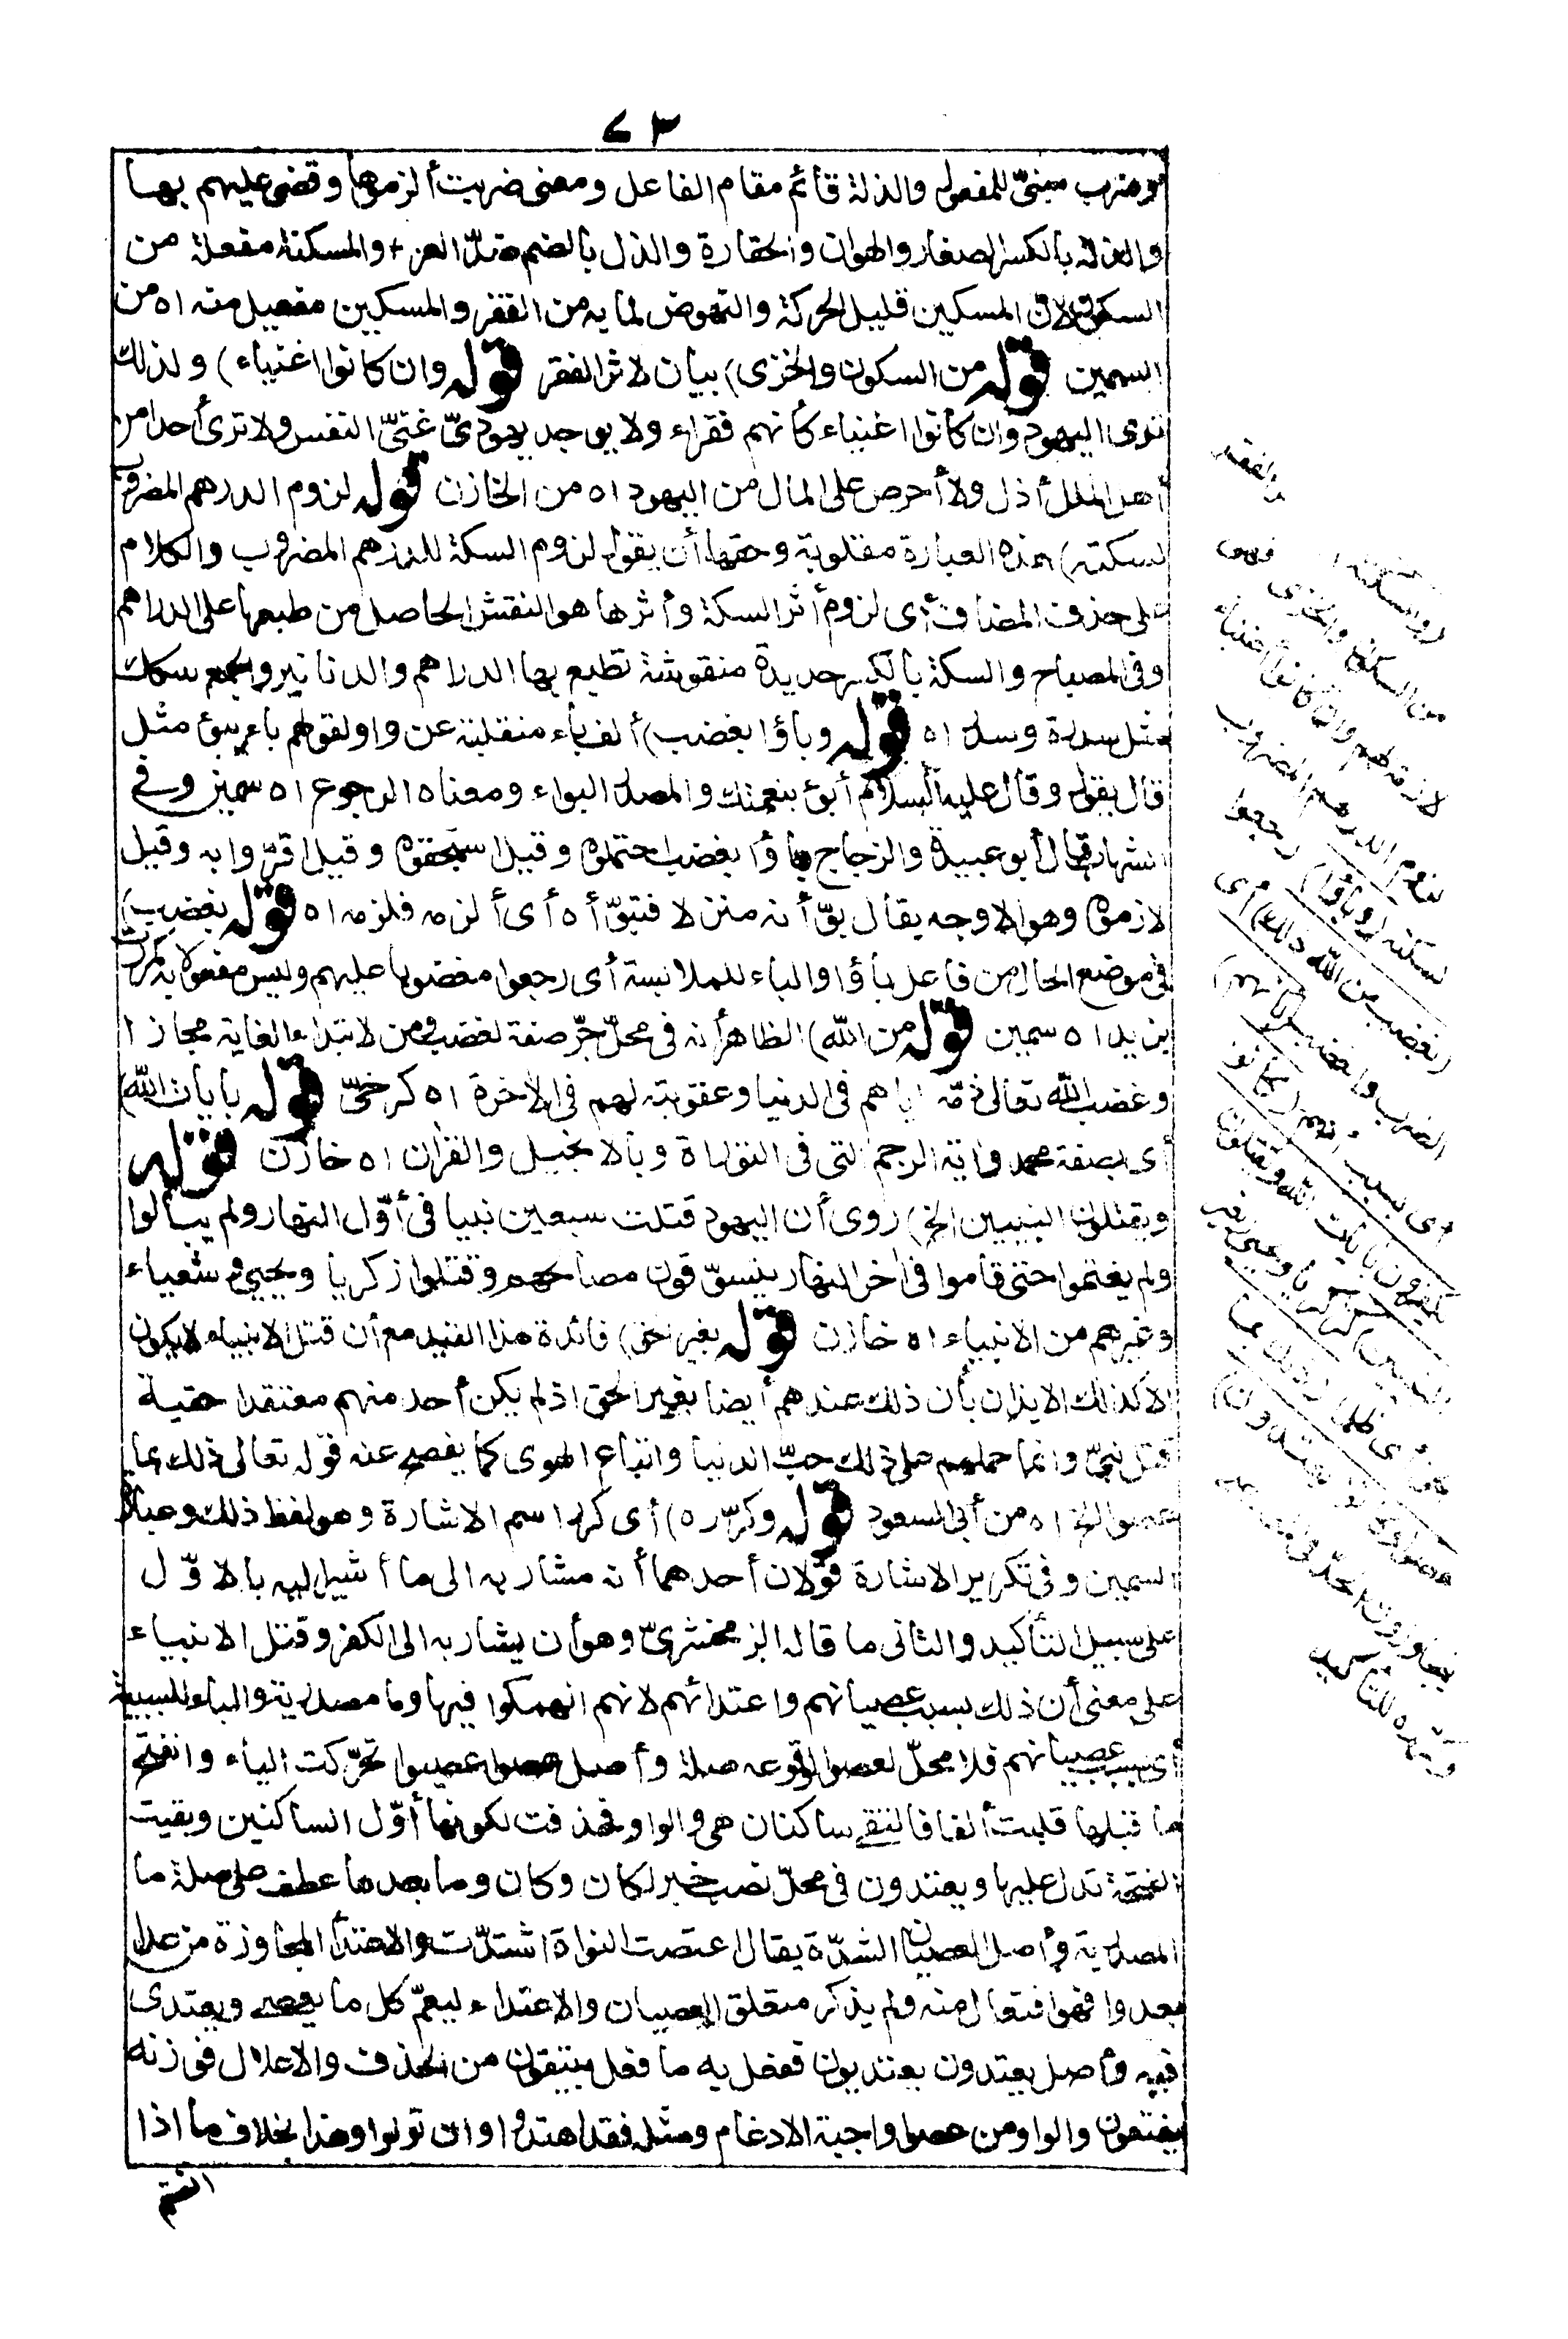 ٧٣
وضرب مبنىّ للمفعول والذلة قائم مقام الفاعل ومعنى ضربت ألزموها وقضى عليهم بها
والذلة بالكسر الصغار والهوان والحقارة والذل بالضم ضدّ العز + والمسكنة مفعلة من
السكون لان المسكين قليل الحركة والنهوض لما به من الفقر والمسكين مفعيل منه اه من
السمين قوله من السكون والخزى) بيان لاثر الفقر قوله وان كانوا اغنياء) ولذلك
ترى اليهود وان كانوا اغنياء كأنهم فقراء ولا يوجد يهودىّ غنىّ النفس ولا ترى أحدا من
أهل الملل أذل ولا أحرص على المال من اليهود اه من الخازن قوله لزوم الدرهم المضروب
لسكته) هذه العبارة مقلوبة وحقها أن يقول لزوم السكة للدرهم المضروب والكلام
على حذف المضاف أى لزوم أثر السكة وأثرها هو النقش الحاصل من طبعها على الدراهم
وفى المصباح والسكة بالكسر حديدة منقوشة تطبع بها الدراهم والدنانير والجمع سكك
مثل سدرة وسدر اه قوله وباؤا بغضب) ألف باء منقلبة عن واو لقولهم باء يبوء مثل
قال يقول وقال عليه السلام أبوء بنعمتك والمصدر البواء ومعناه الرجوع اه سمين وفى
الشهاب قال أبو عبيدة والزجاج باؤا بغضب احتملوه وقيل استحقوه وقيل اقرّوا به وقيل
لازموه وهو الاوجه يقال بوّأته منزلا فتبوّأه أى ألزمه فلزمه اه قوله بغضب)
فى موضع الحال من فاعل باؤا والباء للملابسة أى رجعوا مغضوبا عليهم وليس مفعولا به كمررت
بزيد اه سمين قوله من الله) الظاهر أنه فى محلّ جرّ صفة لغضب ومن لابتداء الغاية مجازا
وغضب الله تعالى ذمّه اياهم فى الدنيا وعقوبته لهم فى الآخرة اه كرخىّ قوله بآيات الله)
أى بصفة محمد وآية الرجم التى فى التوراة وبالانجيل والقرآن اه خازن قوله
ويقتلون النبيين الخ) روى أن اليهود قتلت سبعين نبيا فى أوّل النهار ولم يبالوا
ولم يغتموا حتى قاموا فى آخر النهار يتسوّقون مصالحهم وقتلوا زكريا ويحيى وشعياء
وغيرهم من الانبياء اه خازن قوله بغير الحق) فائدة هذا القيد مع أن قتل الانبياء لا يكون
الا كذلك الايذان بأن ذلك عندهم أيضا بغير الحق اذ لم يكن أحد منهم معتقدا حقية
قتل نبىّ وانما حملهم على ذلك حبّ الدنيا واتباع الهوى كما يفصح عنه قوله تعالى ذلك بما
عصوا الخ اه من أبى السعود قوله وكرّره) أى كرر اسم الاشارة وهو لفظ ذلك وعبارة
السمين وفى تكرير الاشارة قولان أحدهما أنه مشار به الى ما أشير اليه بالاوّل
على سبيل التأكيد والثانى ما قاله الزمخشرىّ وهو أن يشار به الى الكفر وقتل الانبياء
على معنى أن ذلك بسبب عصيانهم واعتدائهم لانهم انهمكوا فيها وما مصدرية والباء للسببية
أى بسبب عصيانهم فلا محلّ لعصوا لوقوعه صلة وأصل عصوا عصيوا تحرّكت الياء وانفتح
ما قبلها قلبت ألفا فالتقى ساكنان هى والواو فحذفت لكونها أوّل الساكنين وبقيت
الفتحة تدل عليها ويعتدون فى محلّ نصب خبر لكان وكان وما بعدها عطف على صلة ما
المصدرية وأصل العصيان الشدّة يقال اعتصت النواة اشتدّت والاعتداء المجاوزة من عدا
يعدو فهو افتعال منه ولم يذكر متعلق العصيان والاعتداء ليعمّ كل ما يعصى ويعتدى
فيه وأصل يعتدون يعتديون ففعل به ما فعل بيتقون من الحذف والاعلال فوزنه
يفتعون والواو من عصوا واجبة الادغام ومثله فقد اهتدوا وان تولوا وهذا بخلاف ما اذا
انضم
والفقر
(والمسكنة)
من السكون والخزى فهى
لازمة لهم وان كانوا أغنياء
لزوم الدرهم المضروب
لسكته (وباؤا) رجعوا
(بغضب من الله ذلك) أى
الضرب والغضب (بأنهم)
أى بسبب أنهم (كانوا
يكفرون بآيات الله ويقتلون
النبيين) كزكريا ويحيى (بغير
الحق) أى ظلما (ذلك بما
عصوا وكانوا يعتدون)
يتجاوزون الحدّ فى
وكرره للتأكيد